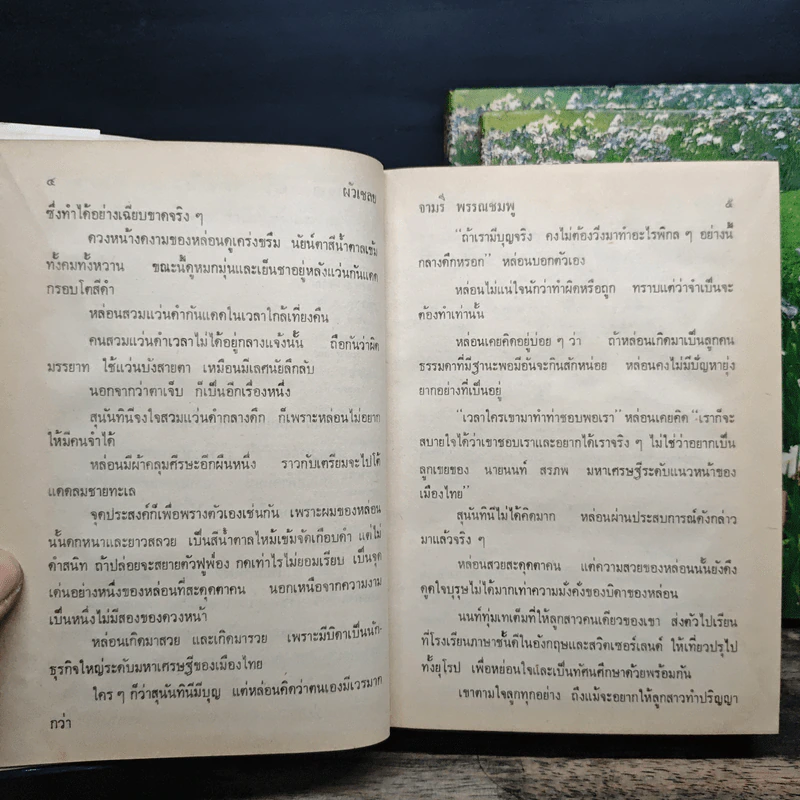 ๔
ผัวเชลย
ซึ่งทำได้อย่างเฉียบขาดจริง ๆ
ดวงหน้างดงามของหล่อนดูเคร่งขรึม นัยน์ตาสีน้ำตาลเข้ม
ทั้งคมทั้งหวาน ขณะนี้ดูหมกมุ่นและเย็นชาอยู่หลังแว่นกันแดด
กรอบโตสีดำ
หล่อนสวมแว่นดำกันแดดในเวลาใกล้เที่ยงคืน
คนสวมแว่นดำเวลาไม่ได้อยู่กลางแจ้งนั้น ถือกันว่าผิด
มรรยาท ใช้แว่นบังสายตา เหมือนมีเลศนัยลึกลับ
นอกจากว่าตาเจ็บ ก็เป็นอีกเรื่องหนึ่ง
สุนันทินีจงใจสวมแว่นดำกลางดึก ก็เพราะหล่อนไม่อยาก
ให้มีคนจำได้
หล่อนมีผ้าคลุมศีรษะอีกผืนหนึ่ง ราวกับเตรียมจะไปโต้
แดดลมชายทะเล
จุดประสงค์ก็เพื่อพรางตัวเองเช่นกัน เพราะผมของหล่อน
นั้นดกหนาและยาวสลวย เป็นสีน้ำตาลไหม้เข้มจัดเกือบดำ แต่ไม่
ดำสนิท ถ้าปล่อยจะสยายตัวฟูฟ่อง กดเท่าไรไม่ยอมเรียบ เป็นจุด
เด่นอย่างหนึ่งของหล่อนที่สะดุดตาคน นอกเหนือจากความงาม
เป็นหนึ่งไม่มีสองของดวงหน้า
หล่อนเกิดมาสวย และเกิดมารวย เพราะมีบิดาเป็นนัก-
ธุรกิจใหญ่ระดับมหาเศรษฐีของเมืองไทย
ใคร ๆ ก็ว่าสุนันทินีมีบุญ แต่หล่อนคิดว่าตนเองมีเวรมาก
กว่า
จามรี พรรณชมพู
๕
"ถ้าเรามีบุญจริง คงไม่ต้องวิ่งมาทำอะไรพิกล ๆ อย่างนี้
กลางดึกหรอก" หล่อนบอกตัวเอง
หล่อนไม่แน่ใจนักว่าทำผิดหรือถูก ทราบแต่ว่าจำเป็นจะ
ต้องทำเท่านั้น
หล่อนเคยคิดอยู่บ่อย ๆ ว่า ถ้าหล่อนเกิดมาเป็นลูกคน
ธรรมดาที่มีฐานะพอมีอันจะกินสักหน่อย หล่อนคงไม่มีปัญหายุ่ง
ยากอย่างที่เป็นอยู่
"เวลาใครเขามาทำท่าชอบพอเรา" หล่อนเคยคิด "เราก็จะ
สบายใจได้ว่าเขาชอบเราและอยากได้เราจริง ๆ ไม่ใช่ว่าอยากเป็น
ลูกเขยของ นายนนท์ สรภพ มหาเศรษฐีระดับแนวหน้าของ
เมืองไทย"
สุนันทินีไม่ได้คิดมาก หล่อนผ่านประสบการณ์ดังกล่าว
มาแล้วจริง ๆ
หล่อนสวยสะดุดตาคน แต่ความสวยของหล่อนนั้นยังดึง
ดูดใจบุรุษไม่ได้มากเท่าความมั่งคั่งของบิดาของหล่อน
นนท์ทุ่มเทเต็มที่ให้ลูกสาวคนเดียวของเขา ส่งตัวไปเรียน
ที่โรงเรียนภาษาชั้นดีในอังกฤษและสวิตเซอร์แลนด์ ให้เที่ยวปรุไป
ทั้งยุโรป เพื่อหย่อนใจและเป็นทัศนศึกษาด้วยพร้อมกัน
เขาตามใจลูกทุกอย่าง ถึงแม้จะอยากให้ลูกสาวทำปริญญา